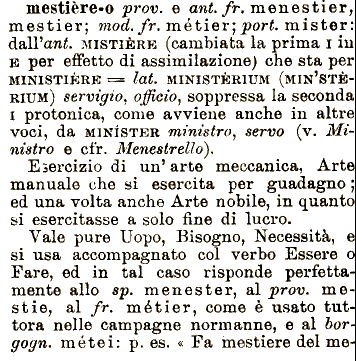 mestière-o prov. e ant. fr. menestier,
mestier; mod. fr. métier; port. mister:
dall'ant. MISTIÈRE (cambiata la prima I in
E per effetto di assimilazione) che sta per
MINISTIÈRE = lat. MINISTÈRIUM (MIN'STÈ-
RIUM) servigio, officio, soppressa la seconda
I protonica, come avviene anche in altre
voci, da MINÍSTER ministro, servo (v. Mi-
nistro e cfr. Menestrello).
Esercizio di un' arte meccanica, Arte
manuale che si esercita per guadagno;
ed una volta anche Arte nobile, in quanto
si esercitasse a solo fine di lucro.
Vale pure Uopo, Bisogno, Necessità, e
si usa accompagnato col verbo Essere o
Fare, ed in tal caso risponde perfetta-
mente allo sp. menester, al prov. me-
stie, al fr. métier, come è usato tut-
tora nelle campagne normanne, e al bor-
gogn. métei: p. es. « Fa mestiere del me-